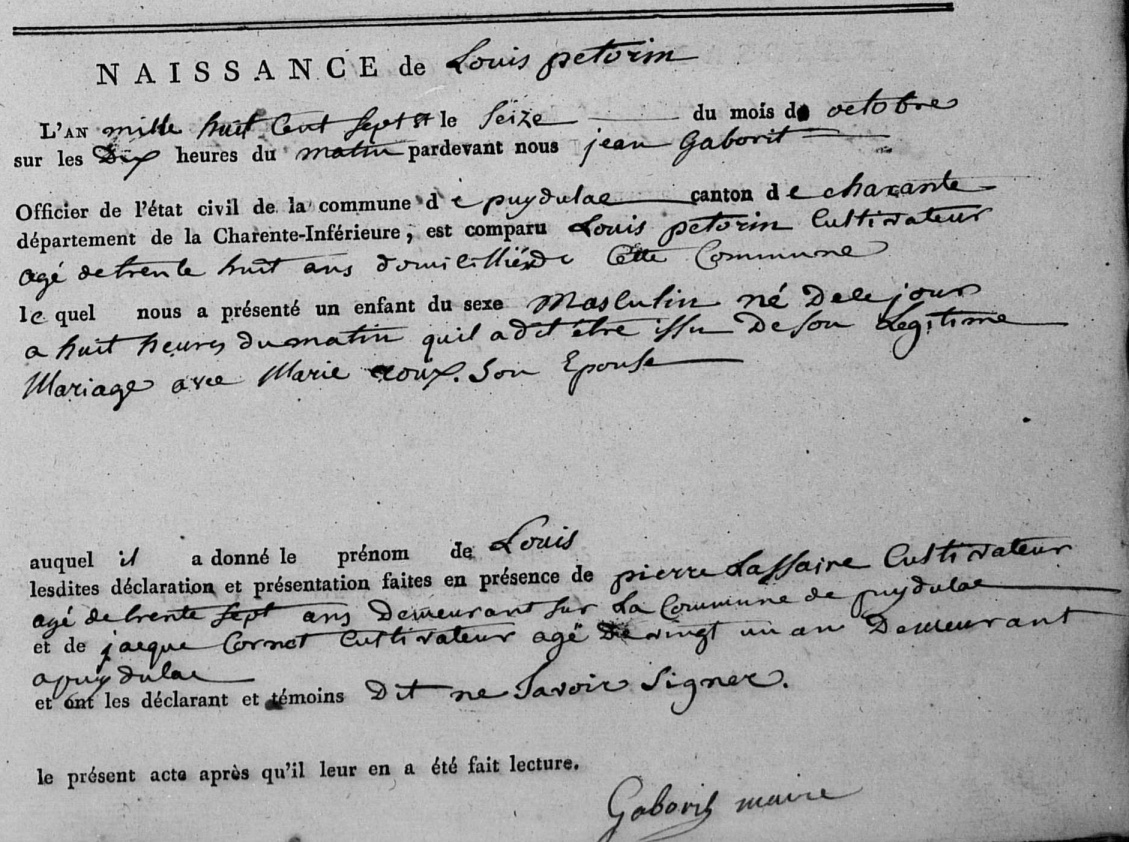 NAISSANCE de Louis petorin
L'AN mille huit Cent sept et le Seize du mois de octobre
sur les Dix heures du matin pardevant nous jean Gaborit
Officier de l'état civil de la commune d e puydulac canton d e charante
département de la Charente-Inférieure, est comparu Louis petorin Cultivateur
agé de trente huit ans domicillié de Cette Commune
le quel nous a présenté un enfant du sexe Masculin né De ce jour
a huit heures du matin quil a dit etre issu De son Legitime
Mariage avec Marie roux. Son Epouse
auquel il a donné le prénom de Louis
lesdites déclaration et présentation faites en présence de pierre Lassaire Cultivateur
agé de trente sept ans Demeurant sur La Commune de puydulac
et de jacque Cornet Cultivateur agé De vingt un an Demeurant
a puydulac
et ont les déclarant et témoins Dit ne Savoir Signer.
le présent acte après qu'il leur en a été fait lecture.
Gaborit maire